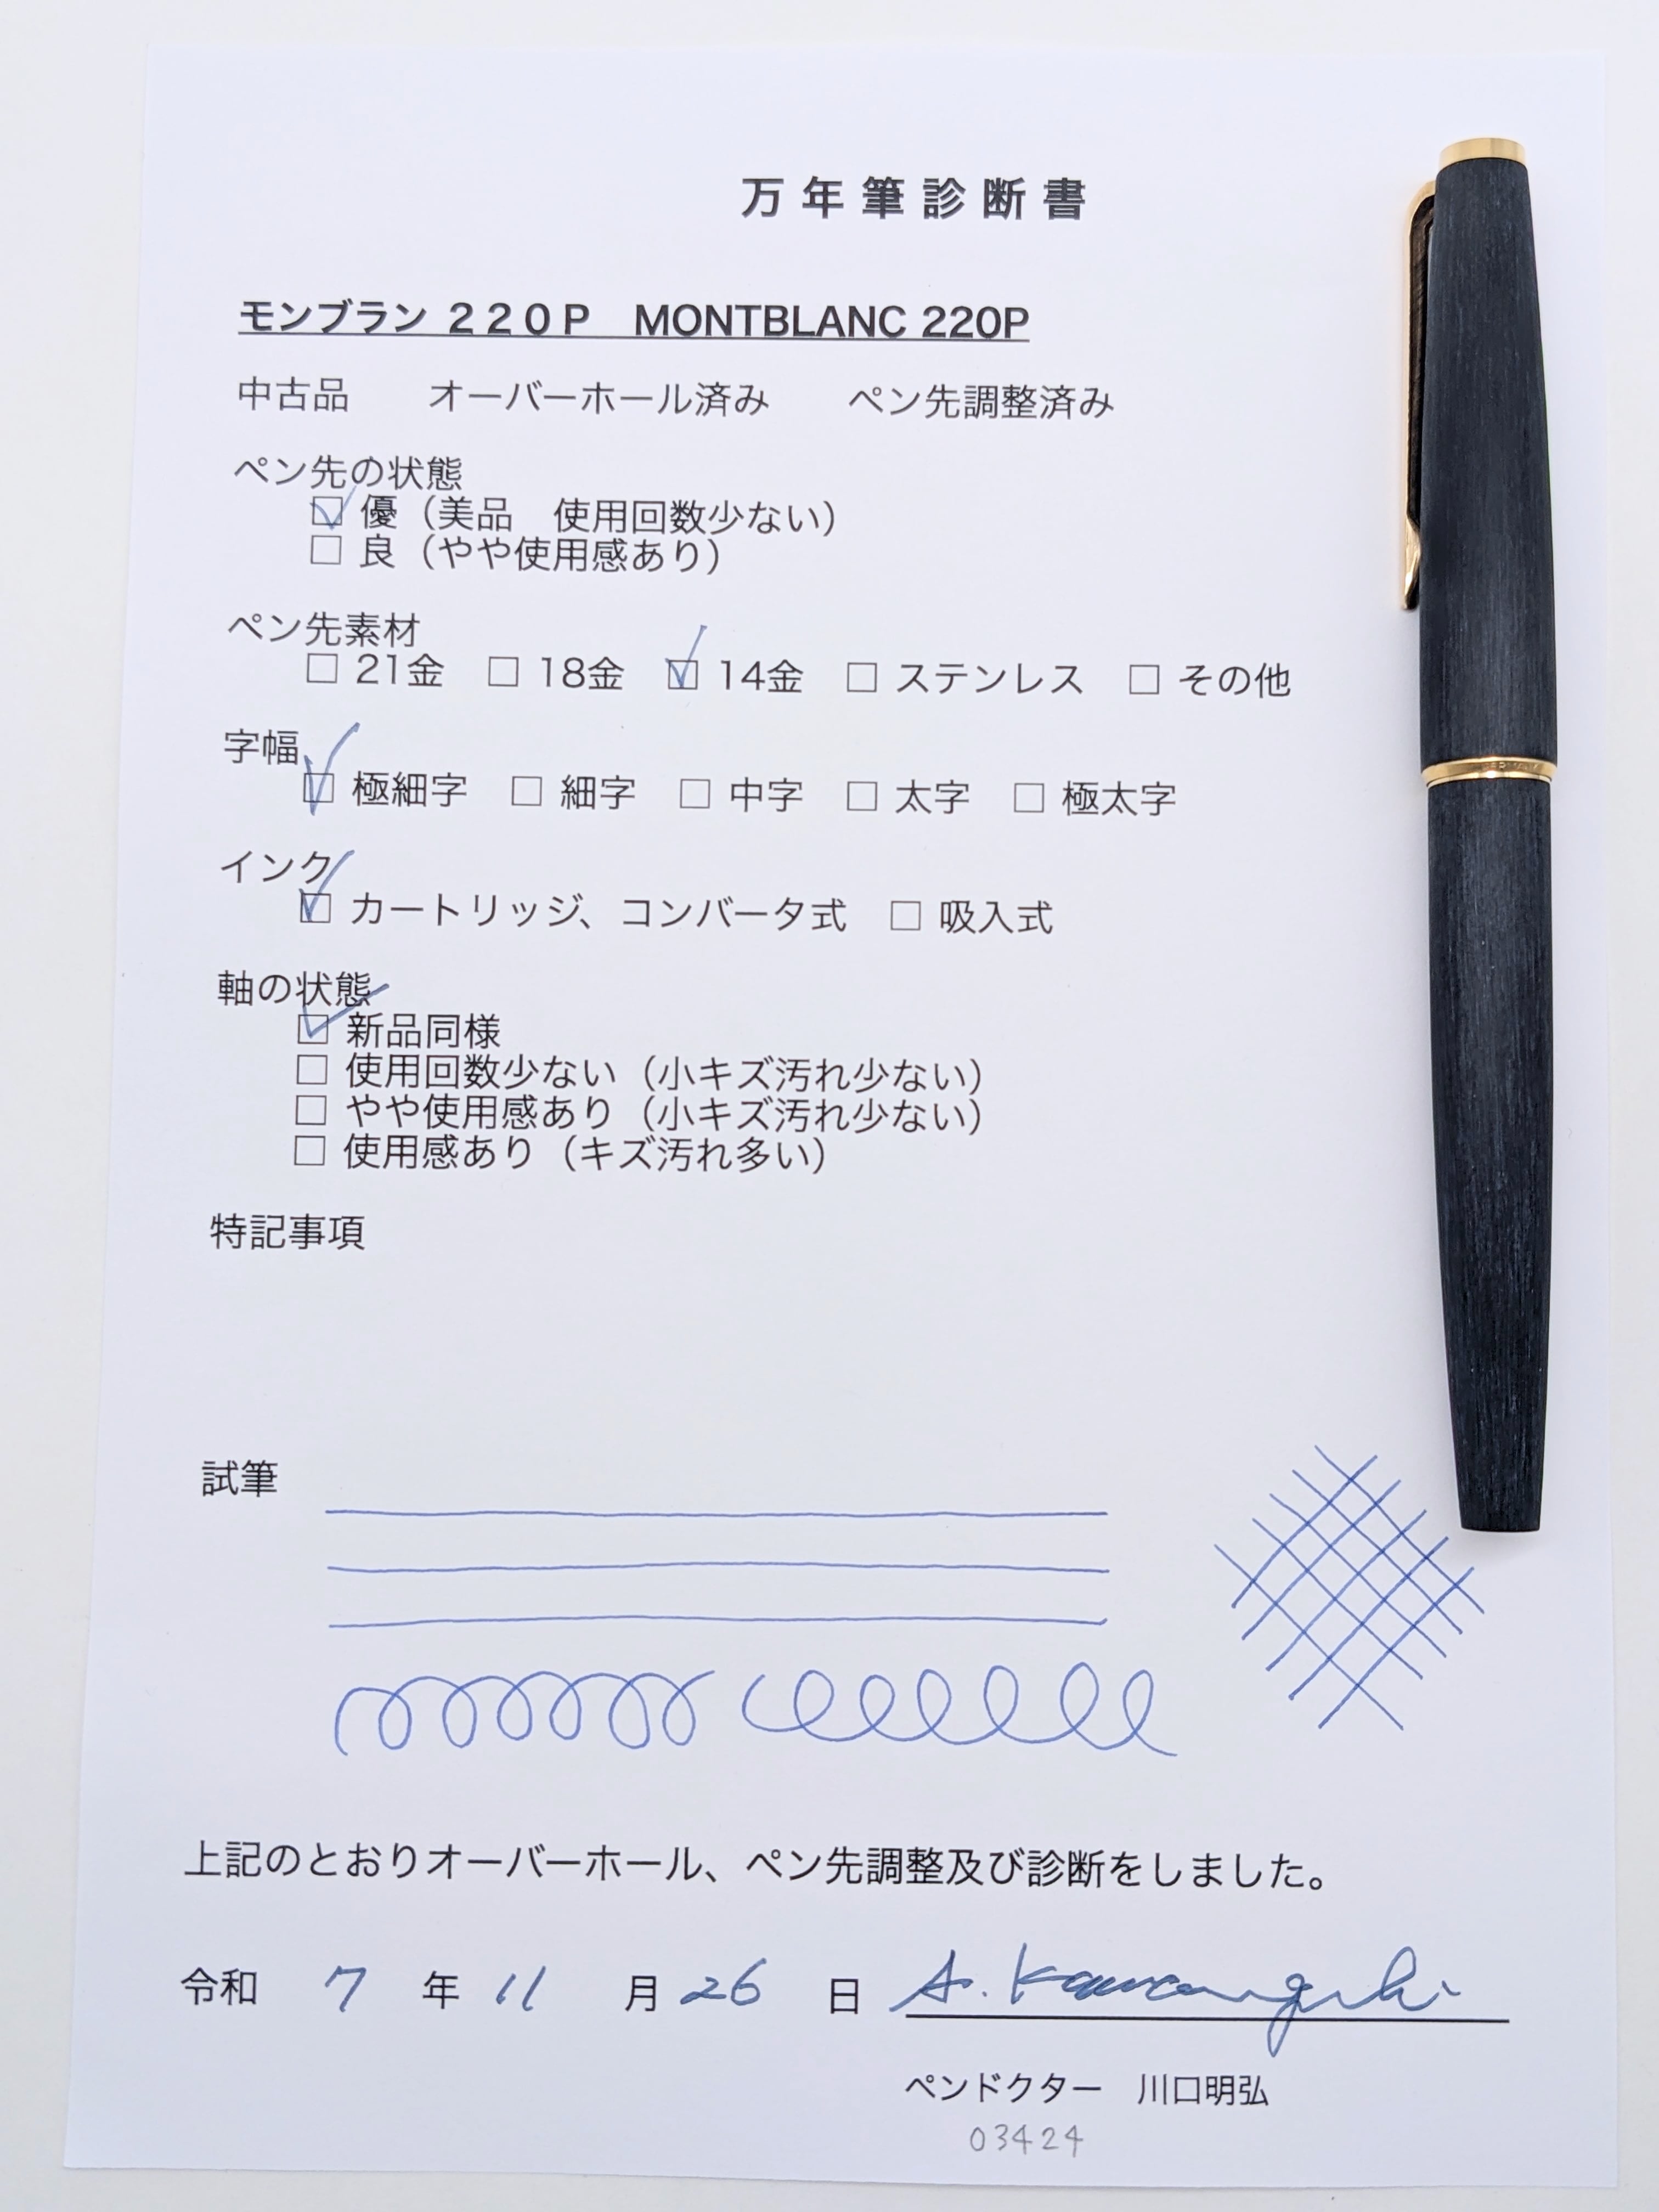 万年筆診断書
モンブラン ２２０Ｐ　MONTBLANC 220P
中古品　　オーバーホール済み　　ペン先調整済み
ペン先の状態
☑ 優（美品　使用回数少ない）
☐ 良（やや使用感あり）
ペン先素材
☐ 21金　☐ 18金　☑ 14金　☐ ステンレス　☐ その他
字幅
☑ 極細字　☐ 細字　☐ 中字　☐ 太字　☐ 極太字
インク
☑ カートリッジ、コンバータ式　☐ 吸入式
軸の状態
☑ 新品同様
☐ 使用回数少ない（小キズ汚れ少ない）
☐ やや使用感あり（小キズ汚れ少ない）
☐ 使用感あり（キズ汚れ多い）
特記事項
試筆
上記のとおりオーバーホール、ペン先調整及び診断をしました。
令和　7　年　11　月　26　日　A. Kawaguchi
ペンドクター　川口明弘
03424